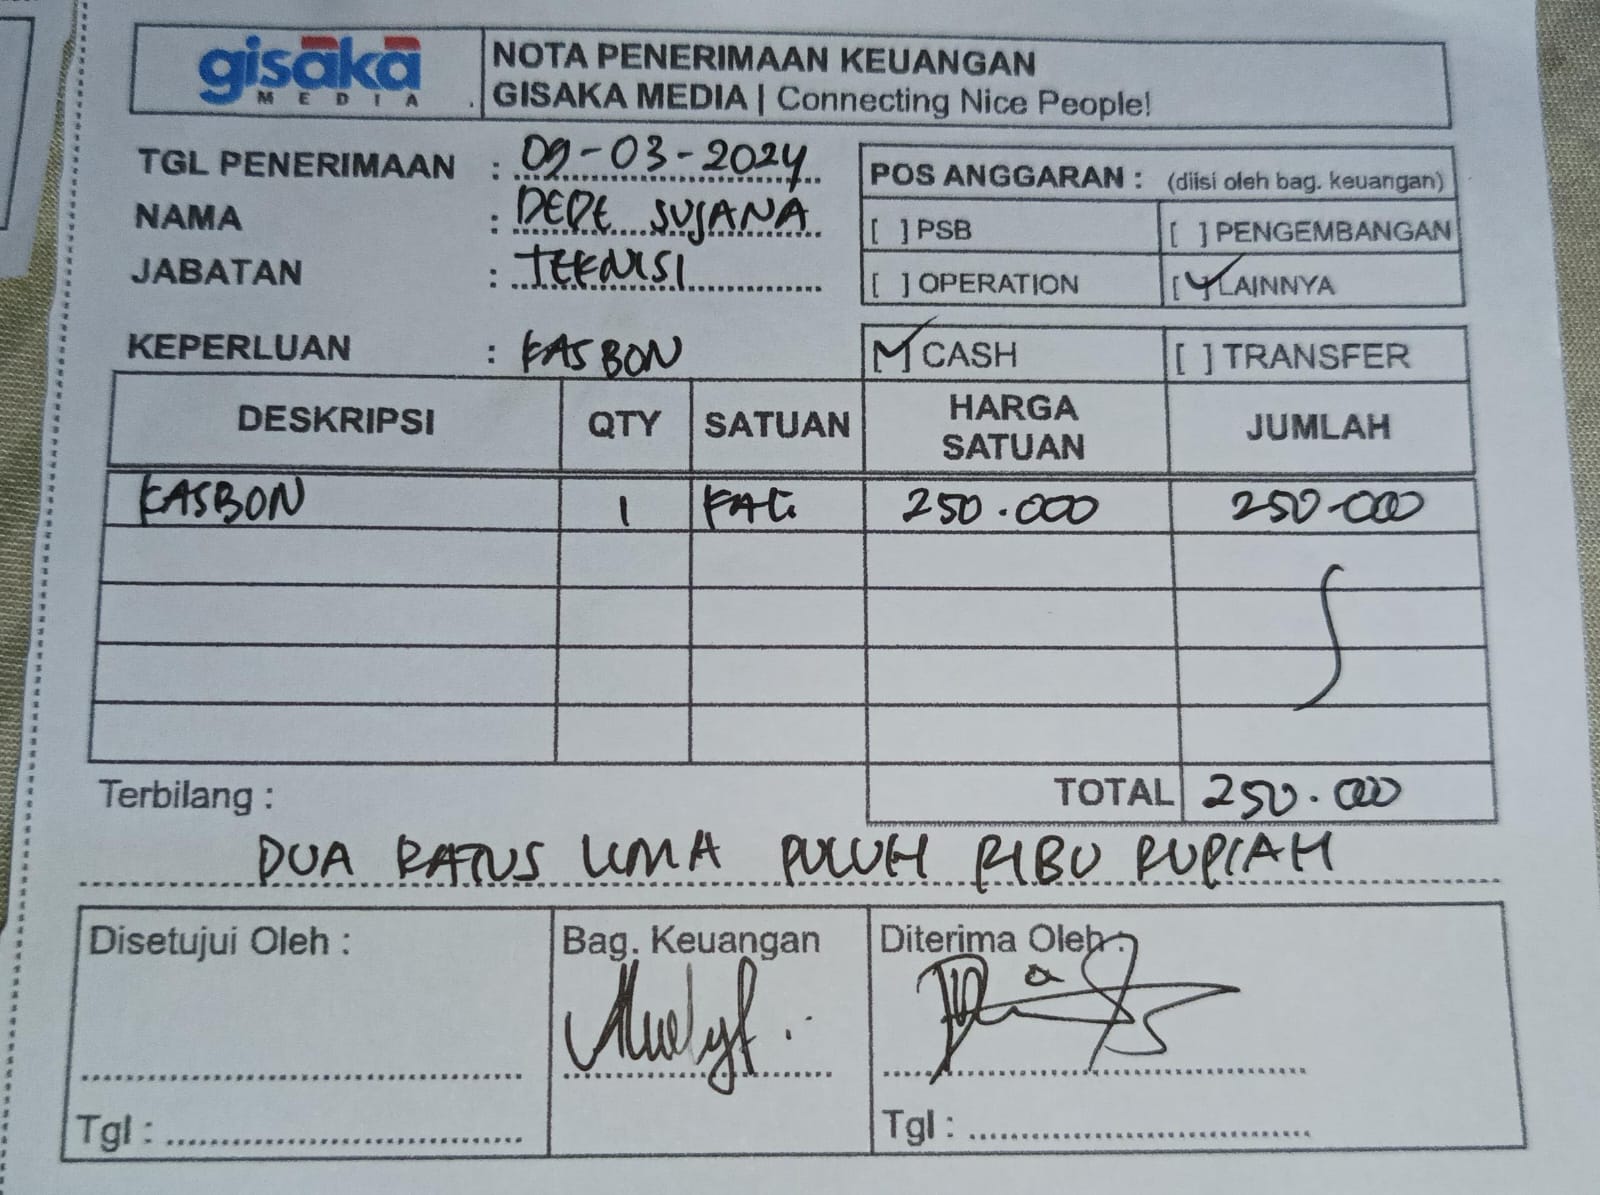 gisaka
MEDIA
NOTA PENERIMAAN KEUANGAN
GISAKA MEDIA | Connecting Nice People!
TGL PENERIMAAN : 09-03-2024
NAMA : DEDE SUJANA
JABATAN : TEKNISI
POS ANGGARAN : (diisi oleh bag. keuangan)
[ ] PSB [ ] PENGEMBANGAN
[ ] OPERATION [✓] LAINNYA
KEPERLUAN : KASBON [✓] CASH [ ] TRANSFER
DESKRIPSI QTY SATUAN HARGA SATUAN JUMLAH
KASBON 1 KALI 250.000 250.000
Terbilang : TOTAL 250.000
DUA RATUS LIMA PULUH RIBU RUPIAH
Disetujui Oleh : Bag. Keuangan Diterima Oleh :
Tgl : Tgl :